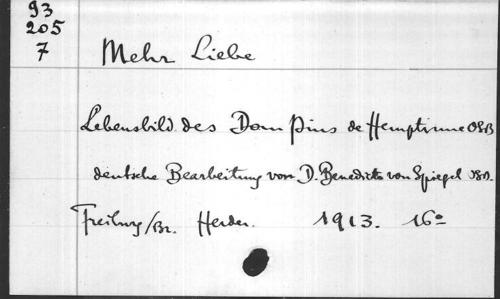 93
205
7
Mehr Liebe
Lebensbild des Dom Pius de Hemptinne OSB
deutsche Bearbeitung von D. Benedicta von Spiegel OSB.
Freiburg/Br. Herder. 1913. 16°